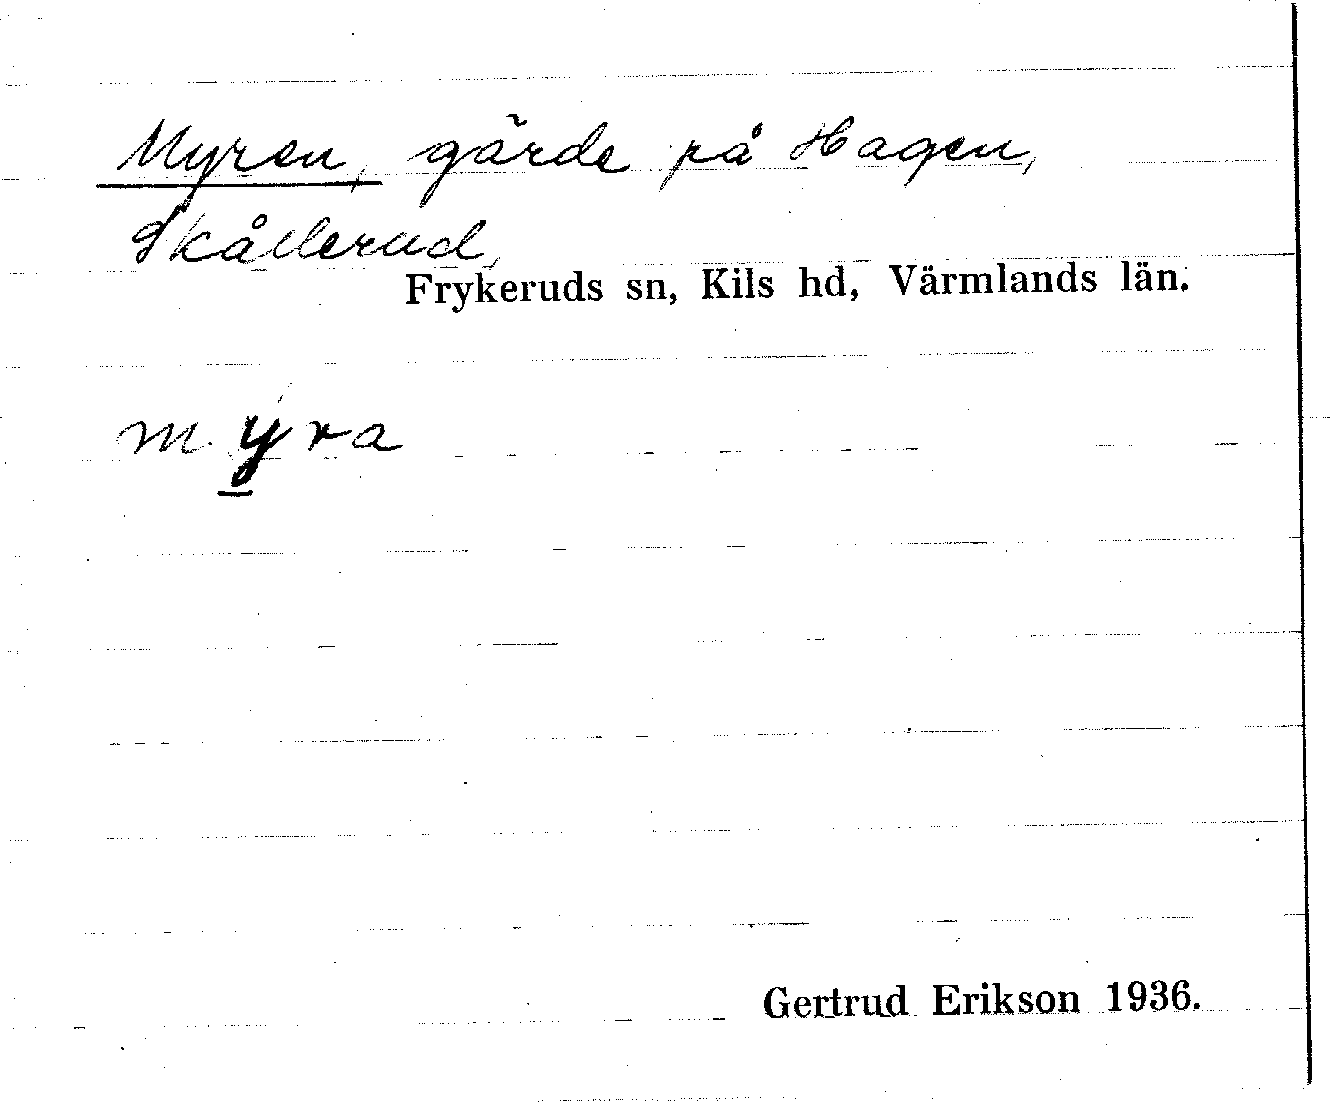 Myren, gärde på Hagen,
Skållerud,
Frykeruds sn, Kils hd, Värmlands län.
mýra
Gertrud Erikson 1936.